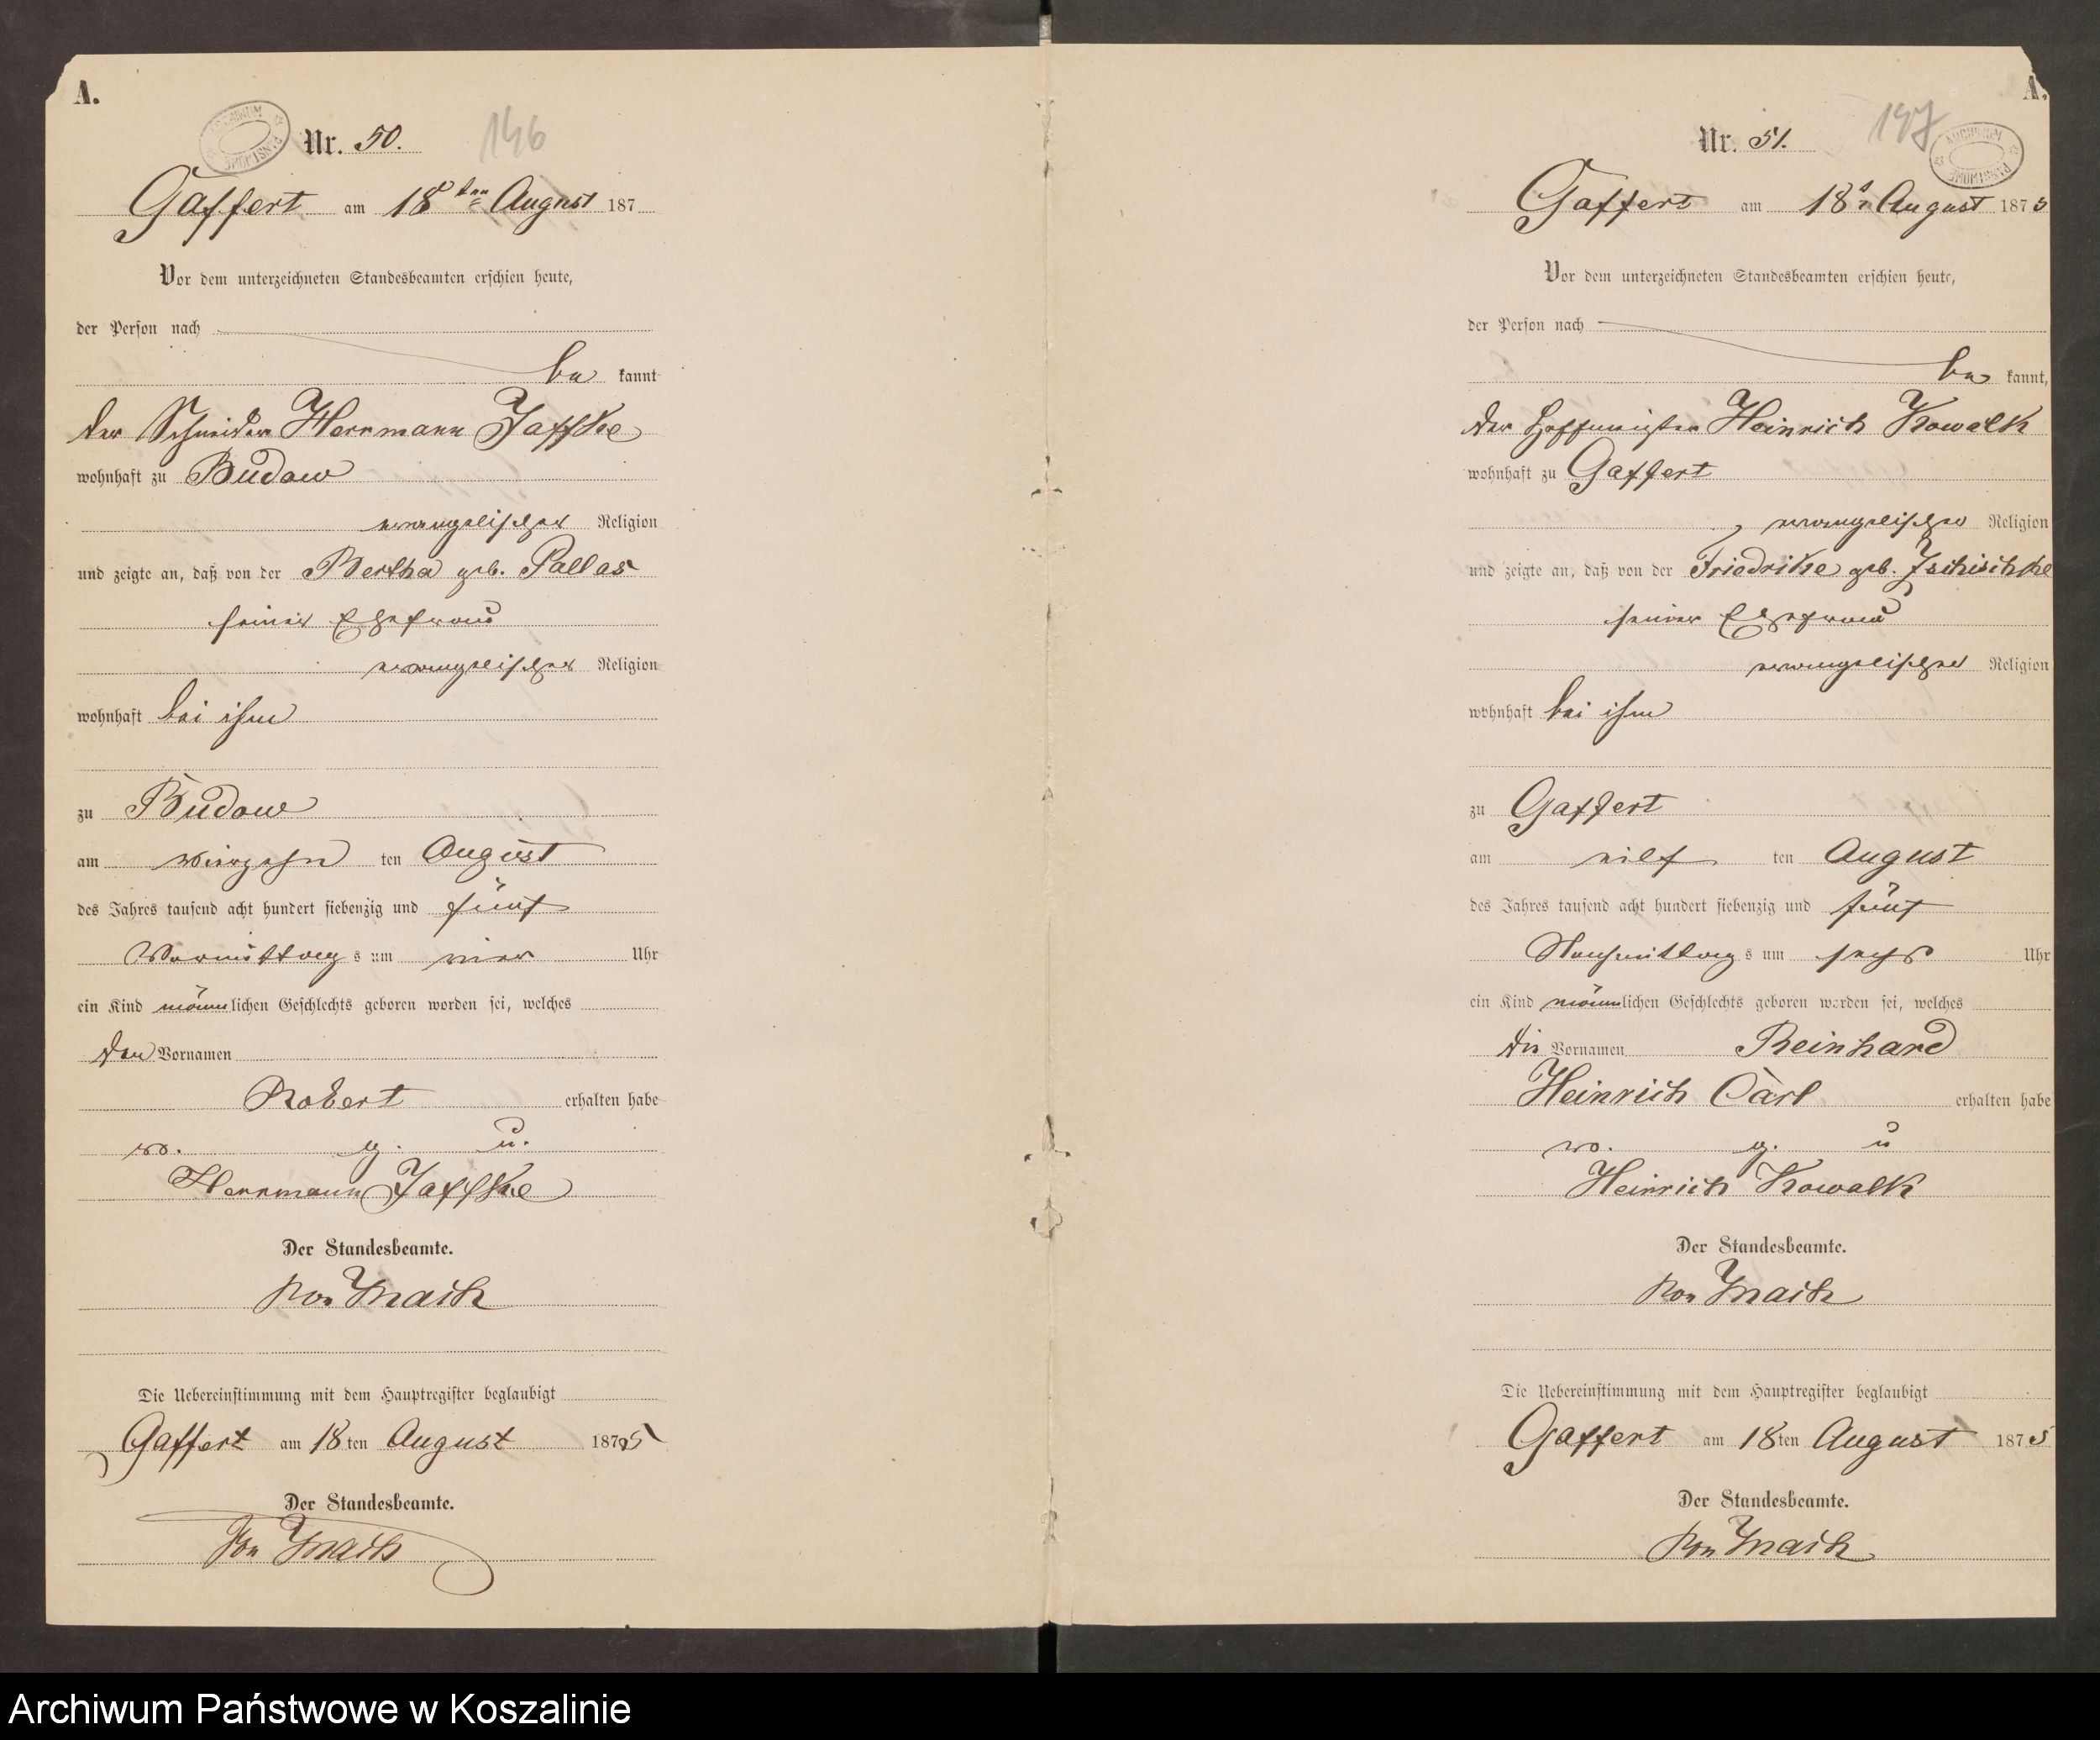 A.
Nr. 50.
146
Gaffert am 18ten August 187
Vor dem unterzeichneten Standesbeamten erschien heute,
der Person nach
be kannt
der Schneider Herrmann Jaffke
wohnhaft zu Budow
evangelischer Religion
und zeigte an, daß von der Bertha geb. Pallas
seiner Ehefrau
evangelischer Religion
wohnhaft bei ihm
zu Budow
am vierzehn ten August
des Jahres tausend acht hundert siebenzig und fünf
Vormittag s um vier Uhr
ein Kind männlichen Geschlechts geboren worden sei, welches
den Vornamen
Robert erhalten habe
v. g. u.
Herrmann Jaffke
Der Standesbeamte.
von
Die Uebereinstimmung mit dem Hauptregister beglaubigt
Gaffert am 18ten August 1875
Der Standesbeamte.
von
A.
Nr. 51.
147
ARCHIWUM
PAŃSTWOWE
Gaffert am 18t August 1875
Vor dem unterzeichneten Standesbeamten erschien heute,
der Person nach
be kannt,
der Hofmeister Heinrich Kowalk
wohnhaft zu Gaffert
, evangelischer Religion
und zeigte an, daß von der Friedrike geb.
seiner Ehefrau
evangelischer Religion
wohnhaft bei ihm
zu Gaffert
am eilf ten August
des Jahres tausend acht hundert siebenzig und fünf
Nachmittag s um sechs Uhr
ein Kind männlichen Geschlechts geboren worden sei, welches
die Vornamen Reinhard
Heinrich Carl erhalten habe
v. g. u
Heinrich Kowalk
Der Standesbeamte.
von
Die Uebereinstimmung mit dem Hauptregister beglaubigt
Gaffert am 18ten August 1875
Der Standesbeamte.
von
Archiwum Państwowe w Koszalinie